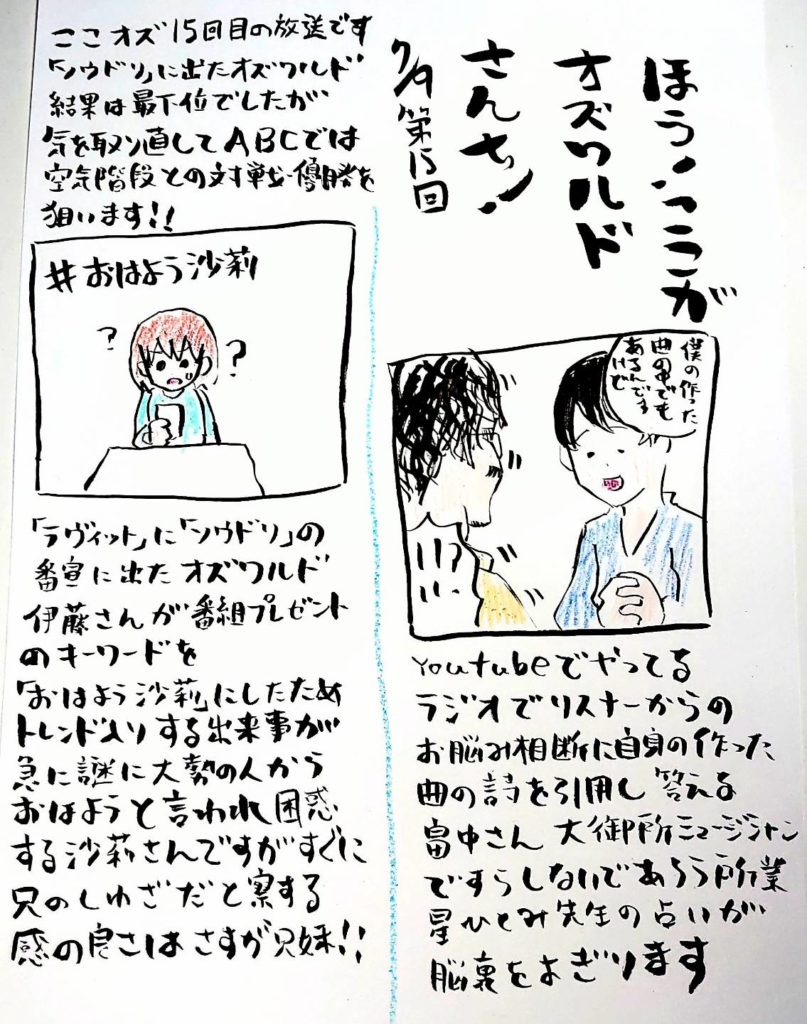 ほら！ここが
オズワルド
さんち！
7/9 第15回
僕の作った
曲の中でも
あるんです
けど
!?
YouTubeでやってる
ラジオでリスナーからの
お脳み相断に自身の作った
曲の詩を引用し答える
畠中さん 大御所ミュージシャン
ですらしないであろう所業
星ひとみ先生の占いが
脳裏をよぎります
ここオズ15回目の放送です
「ソウドリ」に出たオズワルド
結果は最下位でしたが
気を取り直してABCでは
空気階段との対戦・優勝を
狙います!!
#おはよう沙莉
? ?
「ラヴィット」に「ソウドリ」の
番宣に出たオズワルド
伊藤さんが番組プレゼント
のキーワードを
「おはよう沙莉」にしたため
トレンド入りする出来事が
急に謎に大勢の人から
おはようと言われ困惑
する沙莉さんですがすぐに
兄のしわざだと察する
感の良さはさすが兄妹!!